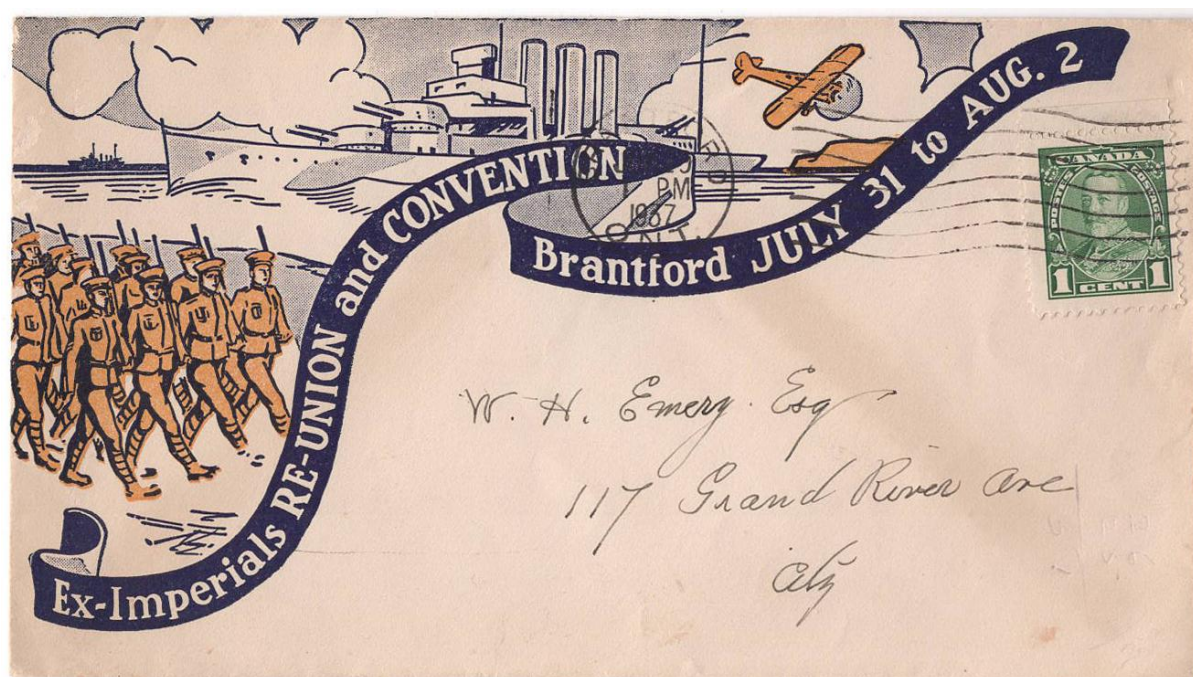 Ex-Imperials RE-UNION and CONVENTION
Brantford JULY 31 to AUG. 2
PM
1937
ONT.
CANADA
POSTES POSTAGE
1 CENT 1
W. H. Emery. Esq
117 Grand River Ave
City